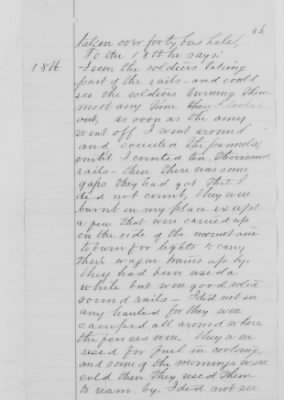 taken over forty bushels,
To the 18th he says:
18th
I seen the soldiers taking
part of the rails - and could
see the soldiers burning them
most any time they I looked
out, as soon as the army
went off I went around
and counted the pannels,
until I counted ten thousand
rails - then there was some
gaps they had got that I
did not count, they were
burnt on my place except
a few that were carried up
on the side of the mountain
to burn for lights to carry
their wagon trains up by.
They had been used a
while but were good
sound rails - I did not see
any hauled for they were
camped all around where
the fences were. They were
used for fuel in cooking
and some of the mornings were
cold then they used them
to warm by. I did not see